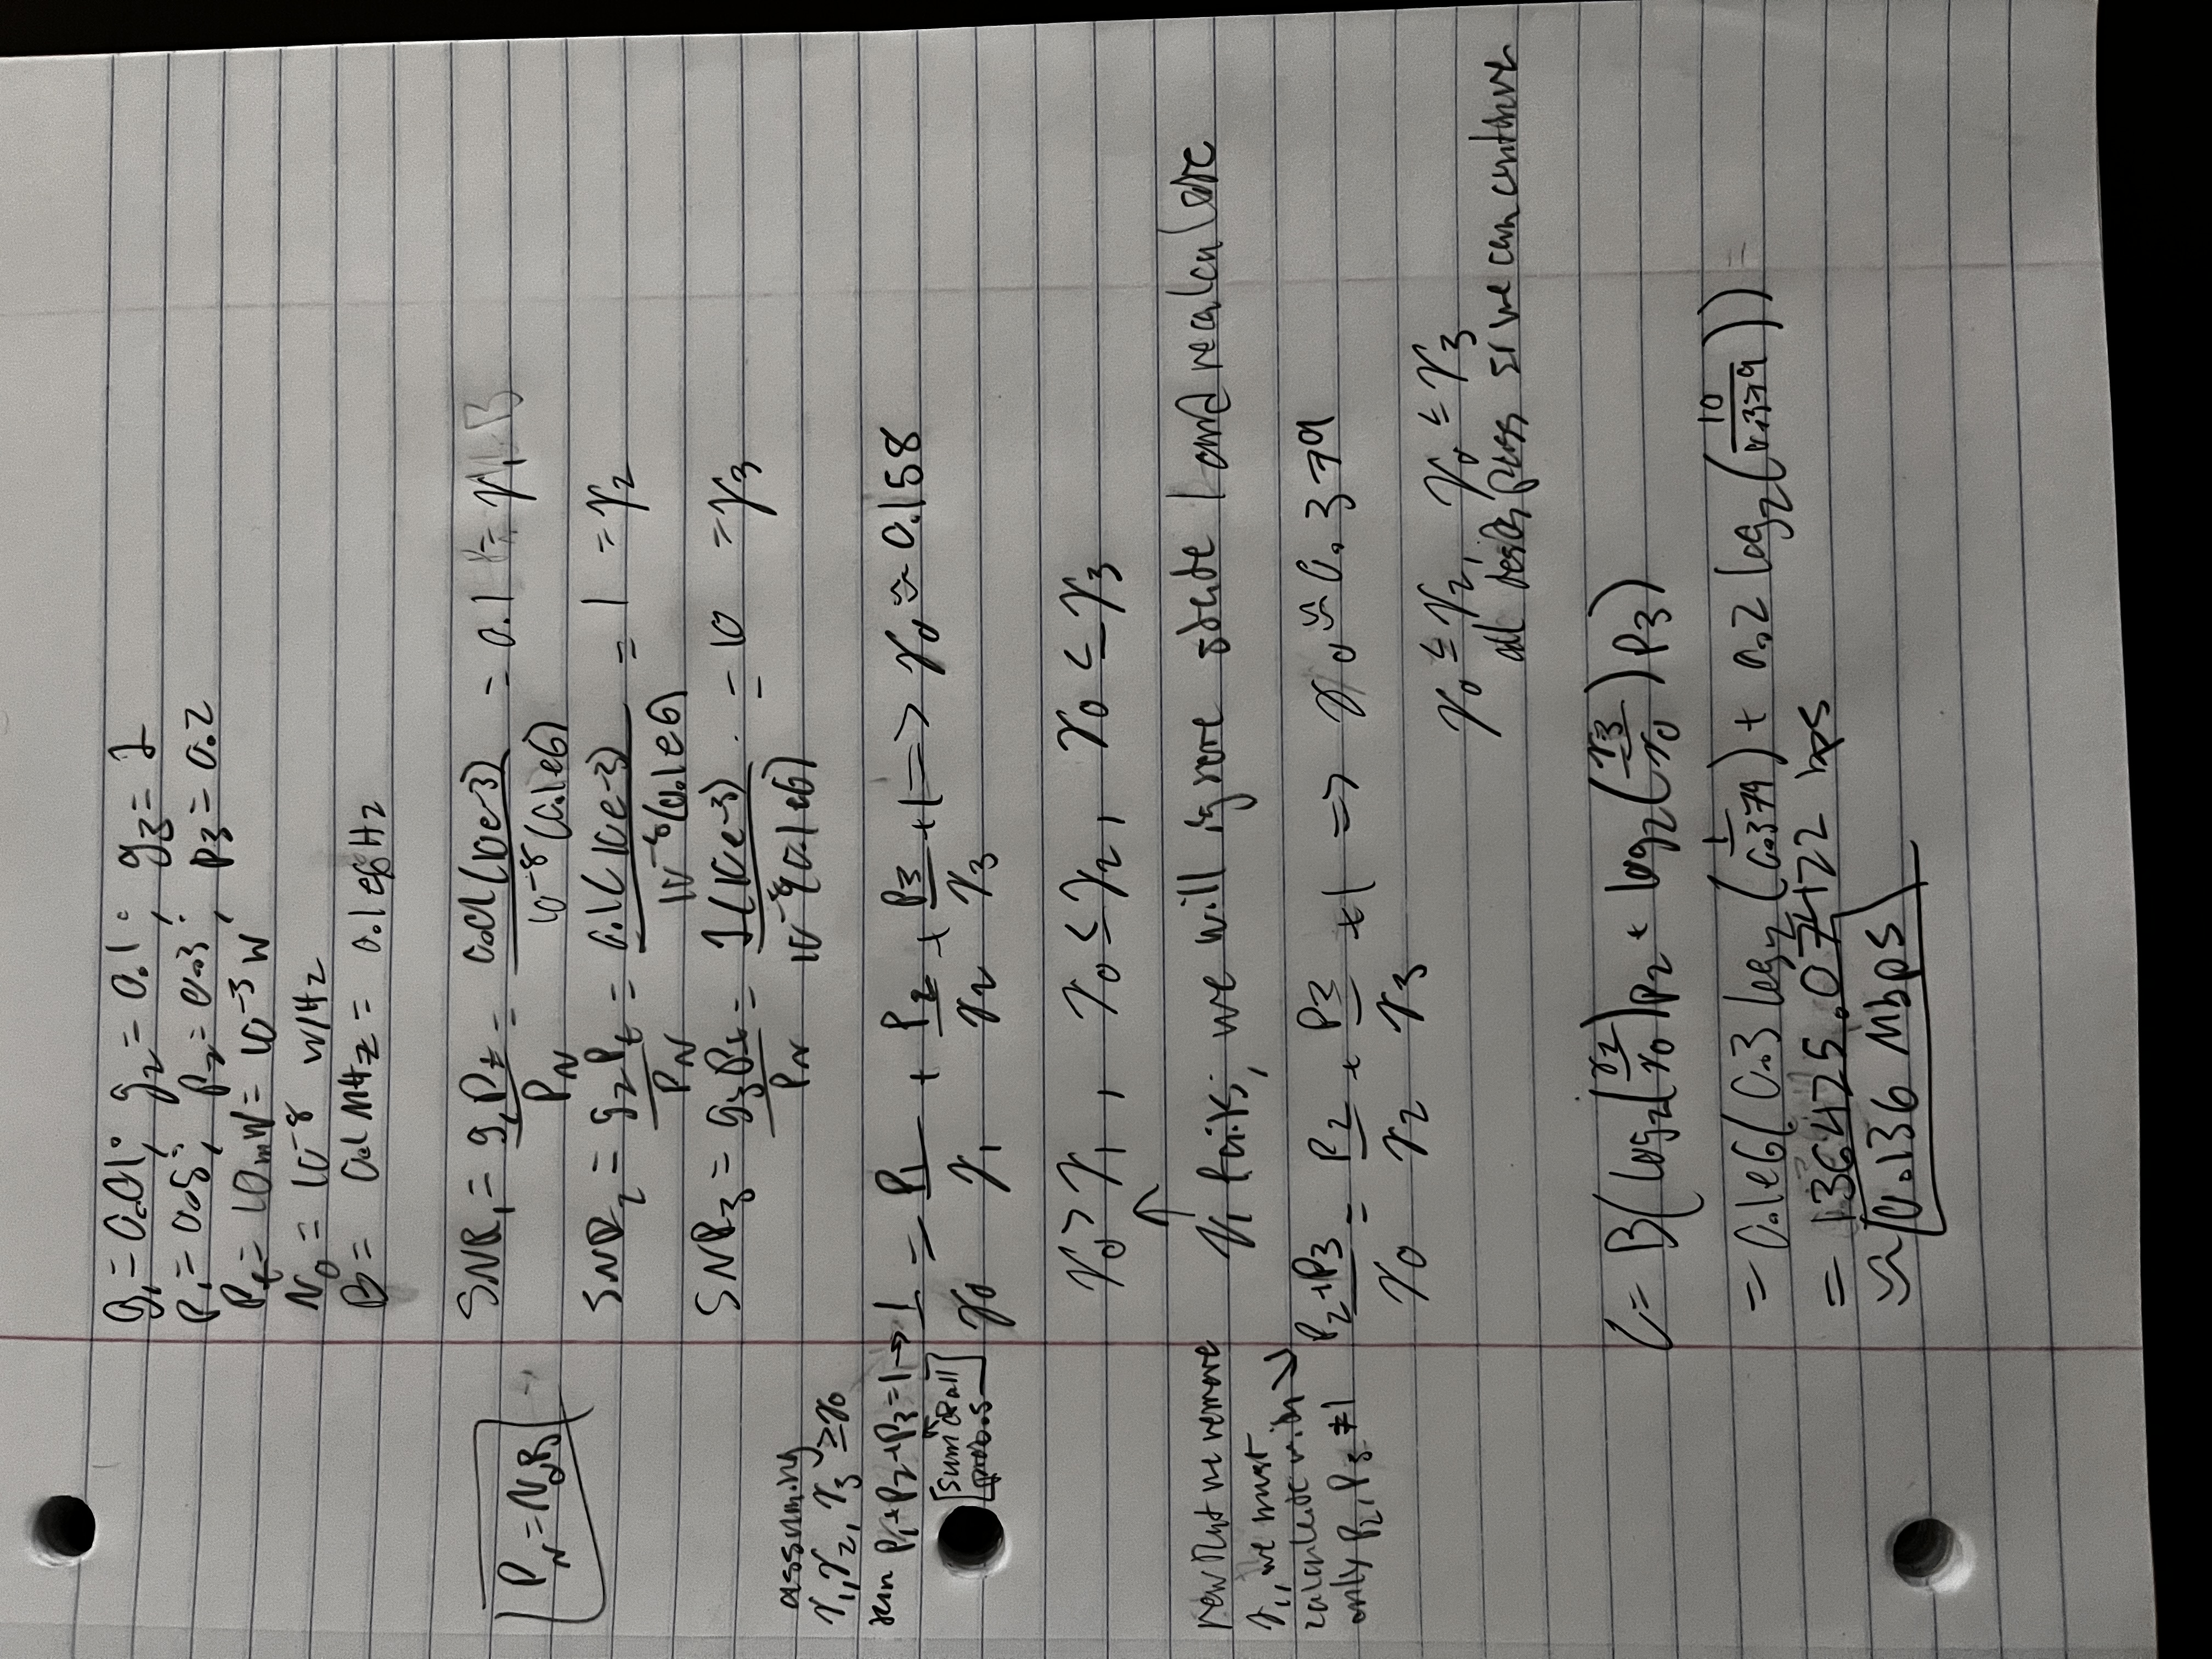 g₁ = 0.01; g₂ = 0.1; g₃ = 1
p₁ = 0.5; p₂ = 0.3; p₃ = 0.2
P_t = 10mW = 10⁻³ W
N₀ = 10⁻⁸ W/Hz
B = 0.1 MHz = 0.1e6 Hz
P_N = N₀B
SNR₁ = g₁P_t/P_N = 0.01(10e-3)/10⁻⁸(0.1e6) = 0.1 = γ₁
SNR₂ = g₂P_t/P_N = 0.1(10e-3)/10⁻⁸(0.1e6) = 1 = γ₂
SNR₃ = g₃P_t/P_N = 1(10e-3)/10⁻⁸(0.1e6) = 10 = γ₃
assuming
γ₁, γ₂, γ₃ ≥ γ₀
P₁+P₂+P₃=1 → 1/γ₀ = P₁/γ₁ + P₂/γ₂ + P₃/γ₃ + 1 => γ₀ ≈ 0.158
[sum of all
probs]
γ₀ > γ₁, γ₀ ≤ γ₂, γ₀ ≤ γ₃
↑
γ₁ fails; we will ignore state 1 and recalculate
now that we remove
γ₁, we must
calculate with ↘
only P₂, P₃ ≠ 1
P₂+P₃/γ₀ = P₂/γ₂ + P₃/γ₃ + 1 => γ₀ ≈ 0.379
γ₀ ≤ γ₂, γ₀ ≤ γ₃
all tests pass so we can continue
C = B(log₂(γ₂/γ₀)p₂ + log₂(γ₃/γ₀)p₃)
= 0.1e6(0.3 log₂(1/0.379) + 0.2 log₂(10/0.379)) =
= 136425.07422 bps
≈ 0.136 Mbps